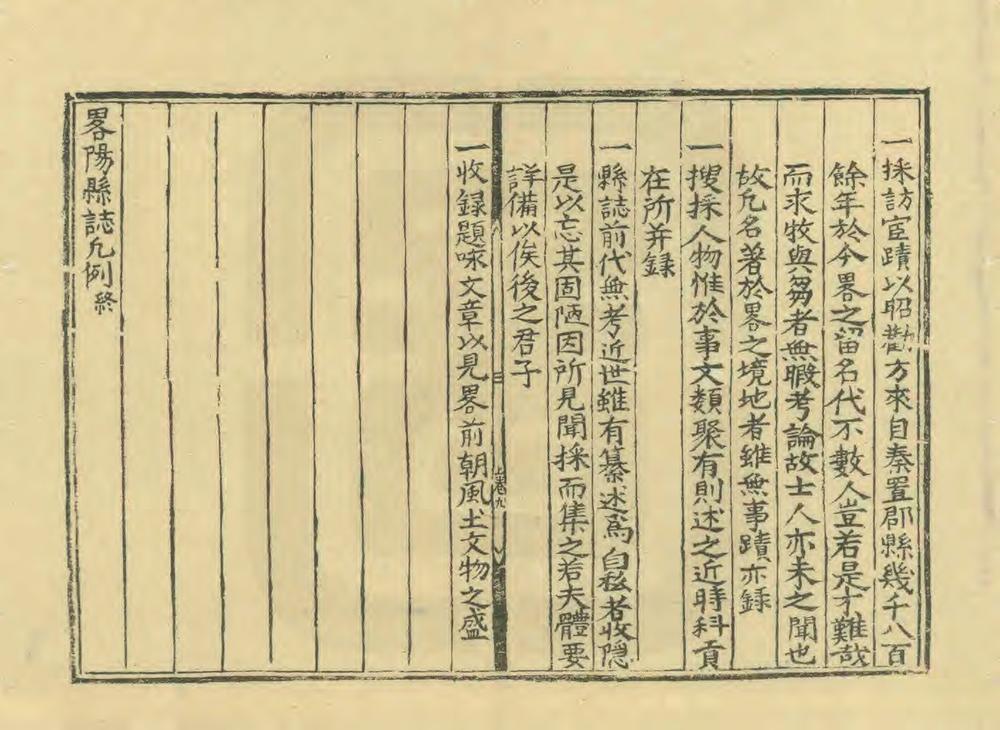 一採訪宦蹟以昭勸方來自秦置郡縣幾千八百
餘年於今畧之留名代不數人豈若是才難哉
而求牧與芻者無暇考論故士人亦未之聞也
故凡名著於畧之境地者雖無事蹟亦録
一搜採人物惟於事文類聚有則述之近時科貢
在所并録
一縣誌前代無考近世雖有纂述爲自秘者收隠
是以忘其固陋因所見聞採而集之若夫體要
詳備以俟後之君子
三
上卷九
一收録題咏文章以見畧前朝風土文物之盛
畧陽縣誌凡例終